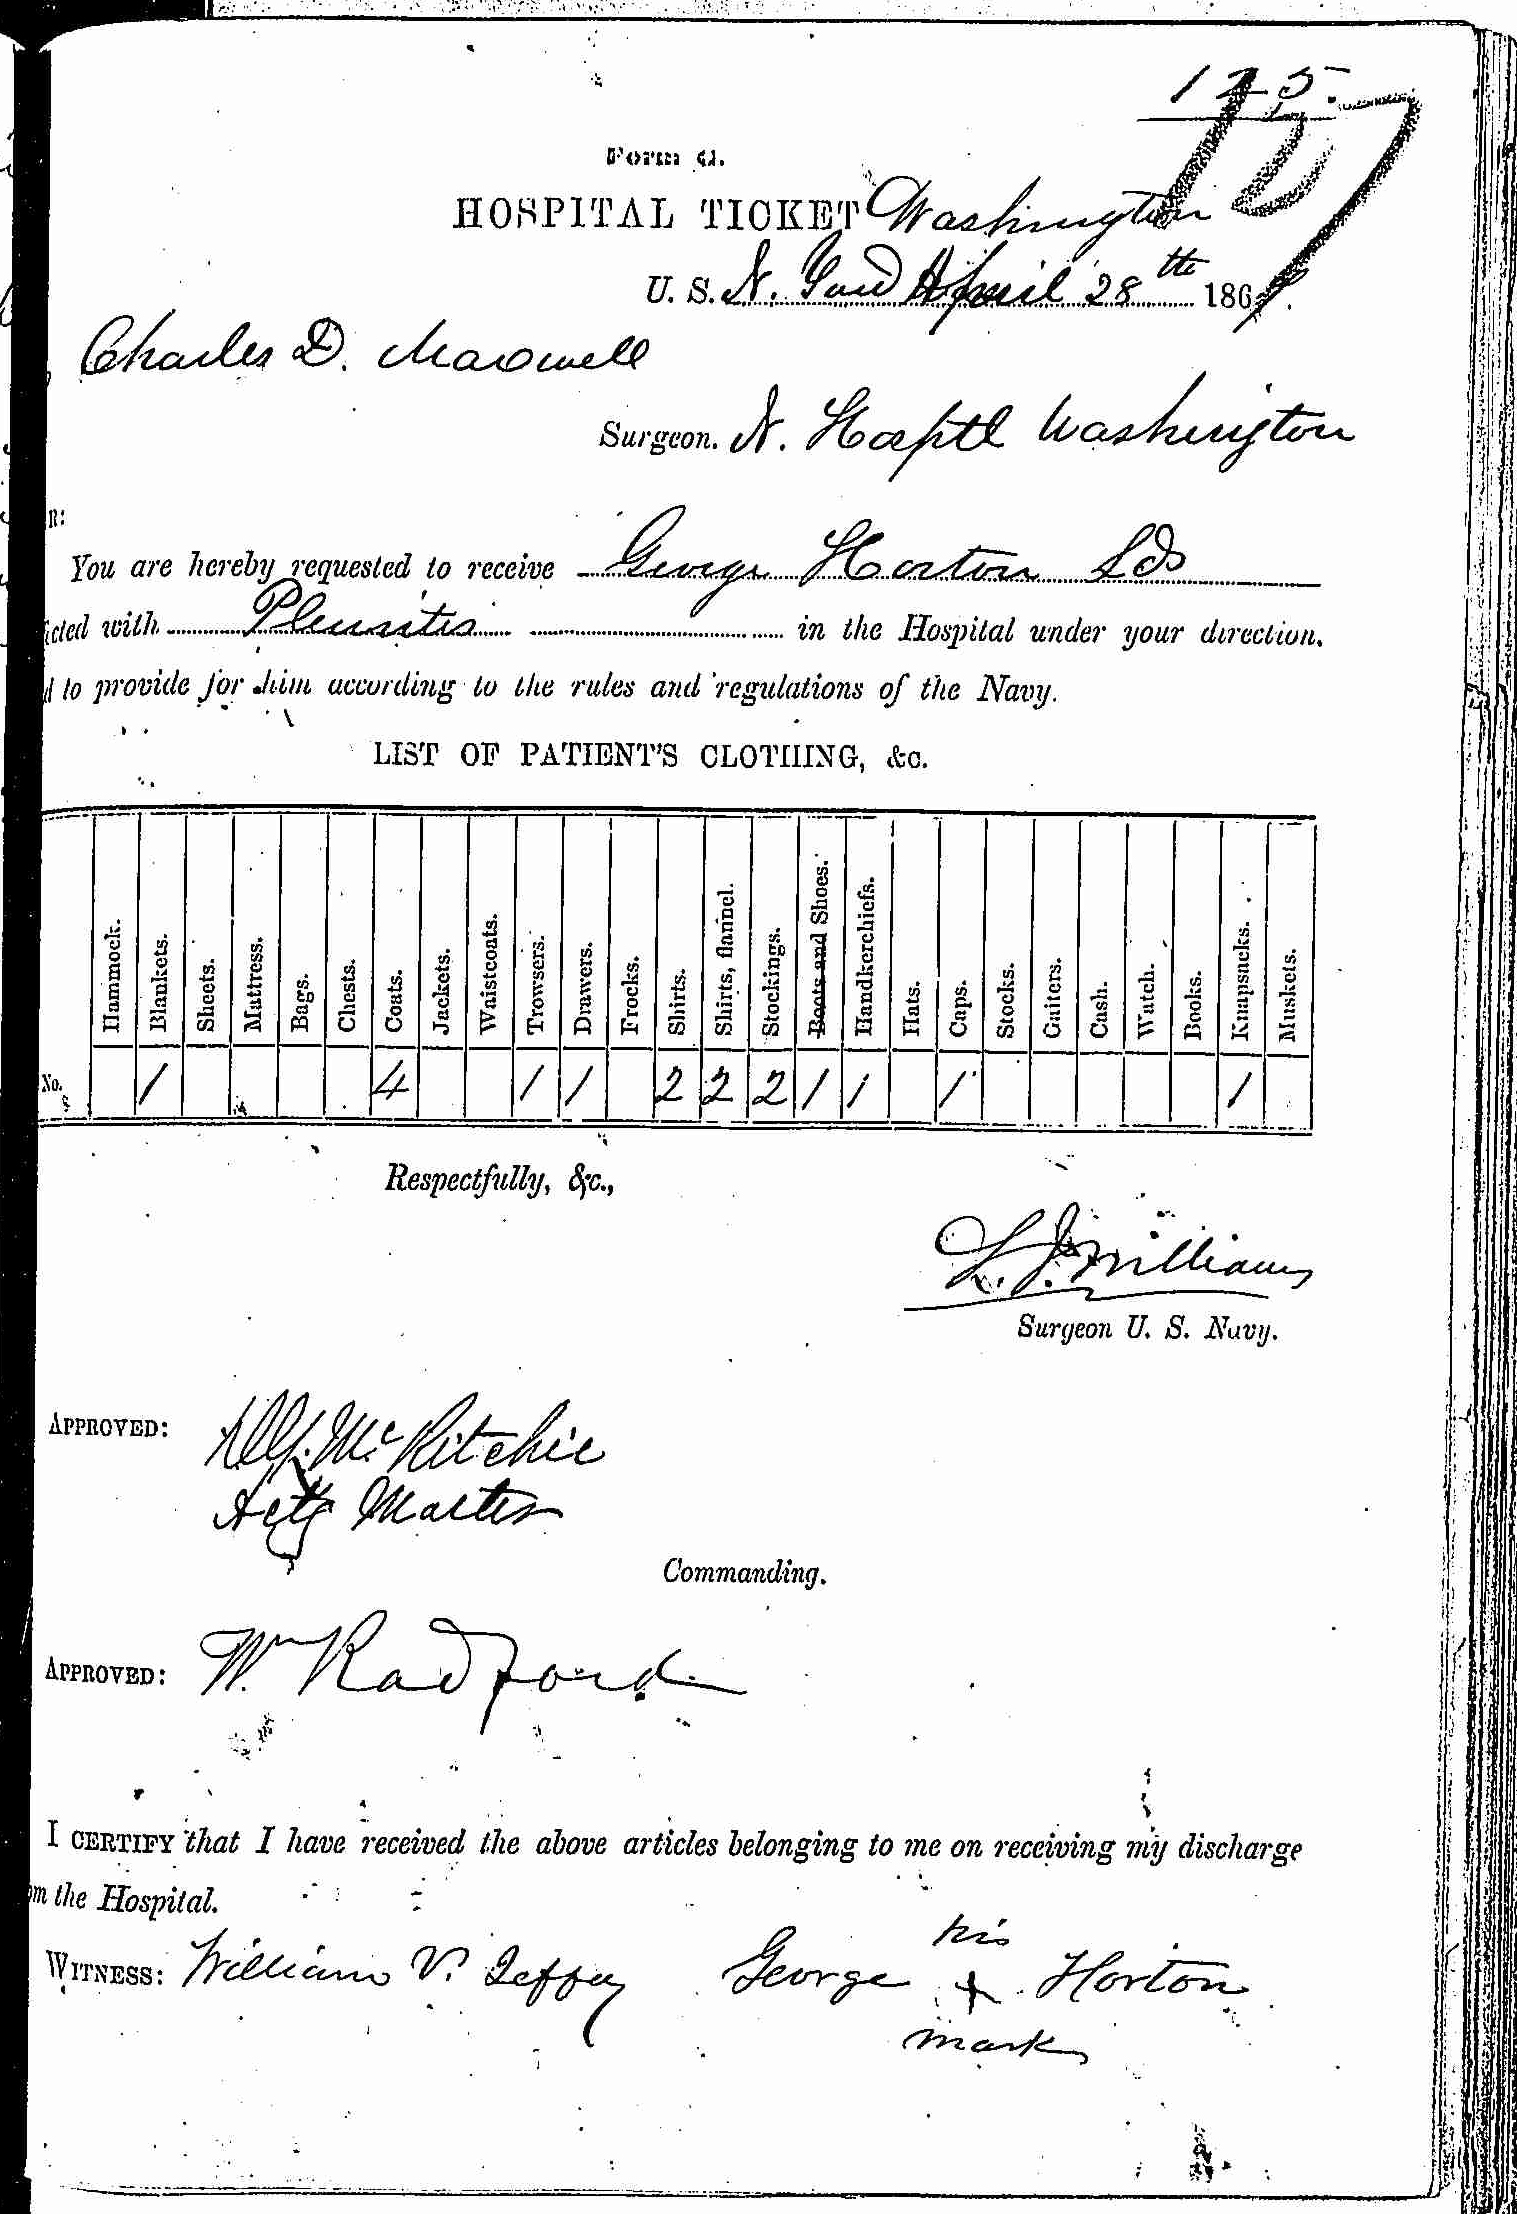 125.
127
Form G.
HOSPITAL TICKET Washington
U. S. N. Yard April 28th 1869.
Charles D. Maxwell
Surgeon. N. Hosptl Washington
R:
You are hereby requested to receive George Horton Lds
icted with Pleuritis in the Hospital under your direction,
d to provide for him according to the rules and regulations of the Navy.
LIST OF PATIENT'S CLOTHING, &c.
Hammock. Blankets. Sheets. Mattress. Bags. Chests. Coats. Jackets. Waistcoats. Trowsers. Drawers. Frocks. Shirts. Shirts, flannel. Stockings. Boots and Shoes. Handkerchiefs. Hats. Caps. Stocks. Gaiters. Cash. Watch. Books. Knapsacks. Muskets.
No. 1 4 1 1 2 2 2 1 1 1 1
Respectfully, &c.,
L. J. Williams
Surgeon U. S. Navy.
APPROVED: McRitchie
Actg Master
Commanding.
APPROVED: Wm Radford
I CERTIFY that I have received the above articles belonging to me on receiving my discharge
om the Hospital.
his
WITNESS: William V. Jeffey George + Horton
mark